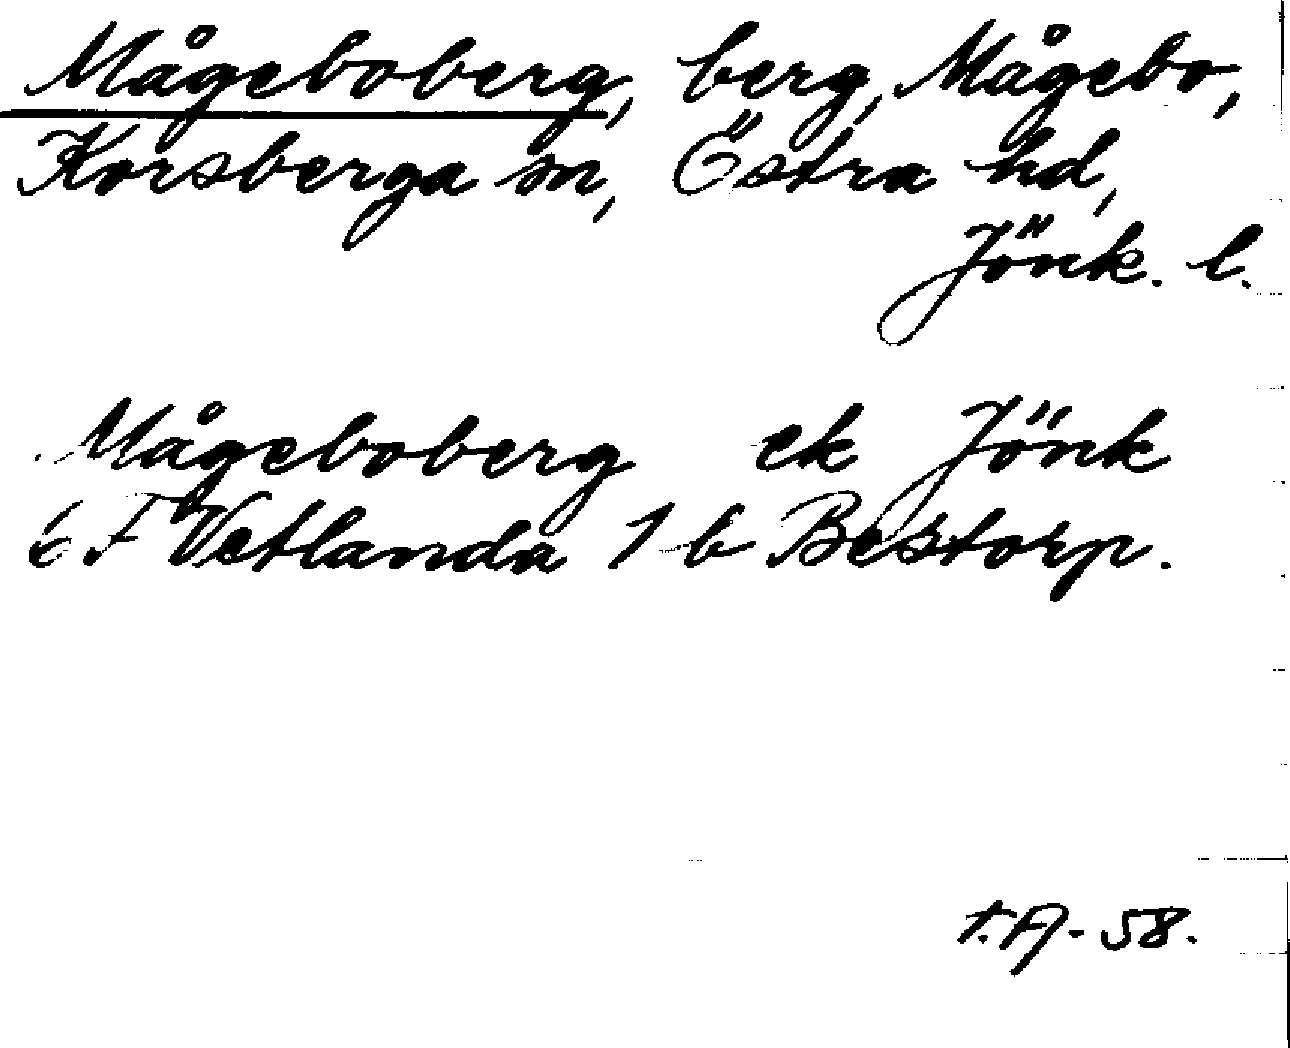 Mågeboberg, berg, Mågebo,
Korsberga sn, Östra hd,
Jönk. l.
Mågeboberg ek Jönk
6 F Vetlanda 1 b Bestorp.
58.